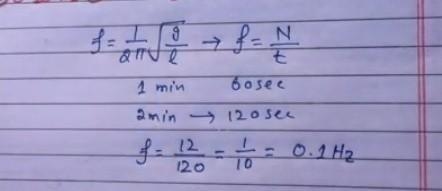 f = 1/2π √g/l → f = N/t
1 min 60 sec
2 min → 120 sec
f = 12/120 = 1/10 = 0.1 Hz